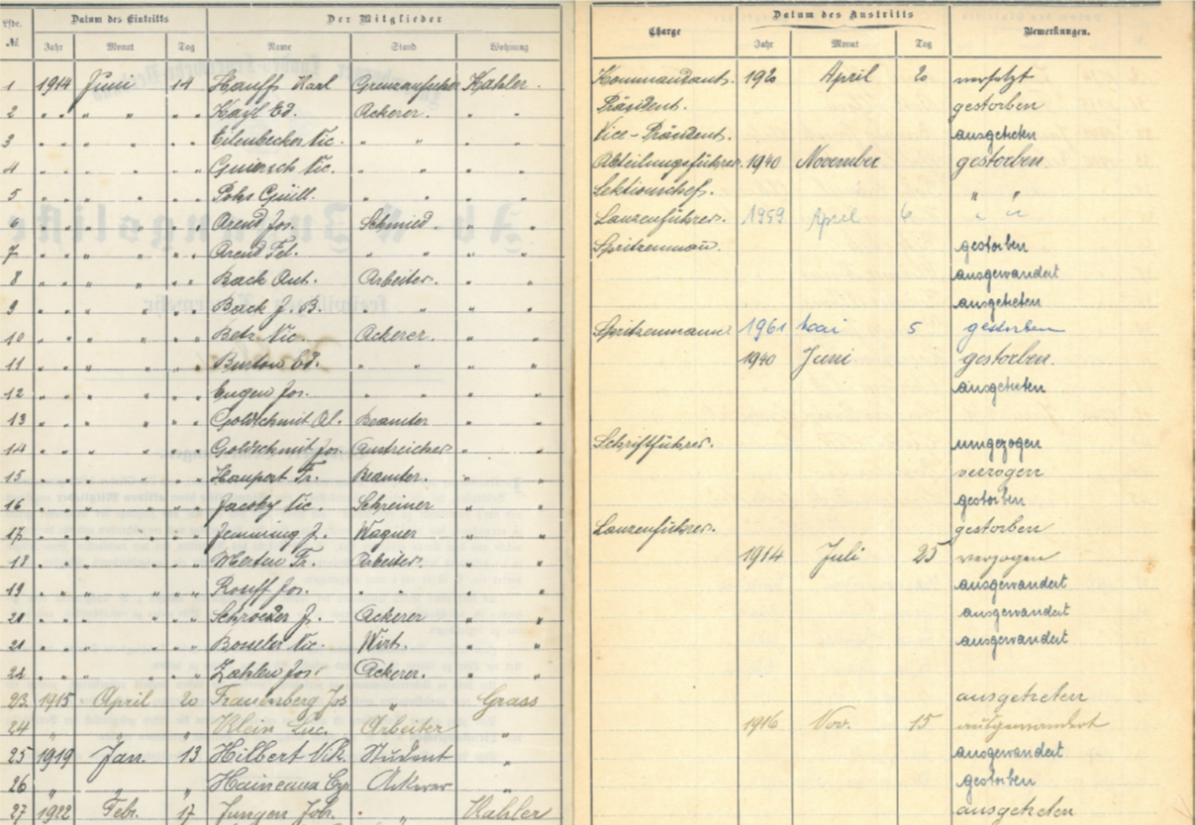 Lfde. № Datum des Eintritts Der Mitglieder Charge Datum des Austritts Bemerkungen.
Jahr Monat Tag Name Stand Wohnung Jahr Monat Tag
1 1914 Juni 14 Hauffs Karl Grenzaufseher Kahler. Kommandant. 192 April 2 versetzt
2 " " " " " " Karl Ed. Ackerer. " " Präsident. gestorben
3 " " " " " " Eilenbecker Nic. " " " " Vice-Präsident. ausgetreten
4 " " " " " " Nic. " " Abteilungsführer. 1940 November gestorben.
5 " " " " " " Guill. " " Sektionschef. " "
6 " " " " " " Arend Jos. Schmied. " " Lanzenführer. 1959 April 6 " "
7 " " " " " " Arend Fel. " " " " Spritzenmann. gestorben
8 " " " " " " Back Ant. Arbeiter. " " ausgewandert
9 " " " " " " Back J. B. " " " " ausgetreten
10 " " " " " " Betz Nic. Ackerer. " " Spritzenmann 1961 Mai 5 gestorben
11 " " " " " " Burton Ed. " " " " 1940 Juni gestorben.
12 " " " " " " Eugen Jos. " " ausgetreten
13 " " " " " " Goldschmit Al. Beamter " "
14 " " " " " " Goldschmit Jos. Anstreicher " " Schriftführer. umgezogen
15 " " " " " " Haupert Fr. Beamter. " " verzogen
16 " " " " " " Jacoby Nic. Schreiner " " gestorben
17 " " " " " " Jemming J. Wagner " " Lanzenführer. gestorben
18 " " " " " " Merten Fr. Arbeiter. " " 1914 Juli 25 verzogen
19 " " " " " " Rouff Jos. " " " " ausgewandert
20 " " " " " " Schroeder J. Ackerer " " ausgewandert
21 " " " " " " Bouseler Nic. Wirt. " " ausgewandert
22 " " " " " " Zahlen Jos. Ackerer. " "
23. 1915 April 20 Frauenberg Jos " Grass ausgetreten
24 " " " Klein Luc. Arbeiter " 1916 Nov. 15 ausgewandert
25 1919 Jan. 13 Hilbert Nik. Student " ausgewandert
26 " " " Ackerer " gestorben
27 1922 Febr. 17 Jungen Joh. " " Kahler ausgetreten